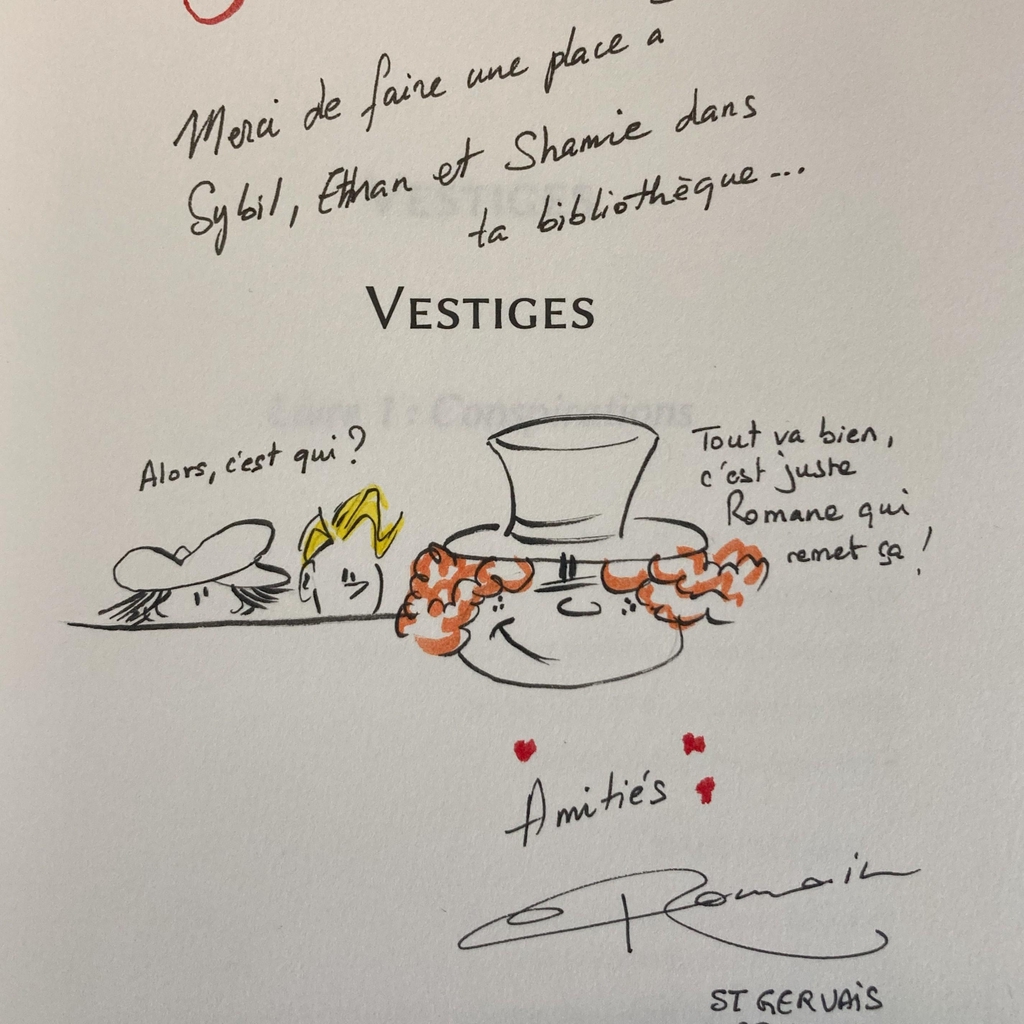 Merci de faire une place a
Sybil, Ethan et Shamie dans
ta bibliothèque...
VESTIGES
Livre 1 : Conspirations
Alors, c'est qui ?
Tout va bien,
c'est juste
Romane qui
remet ça !
Amitiés
Romain
ST GERVAIS